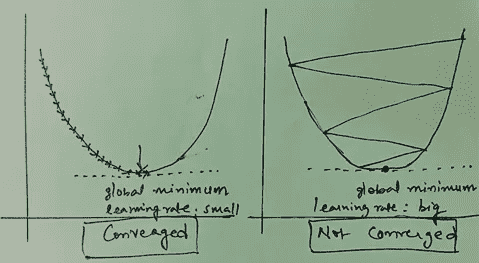 global minimum
learning rate: small
Converged
global minimum
learning rate: big
Not Converged